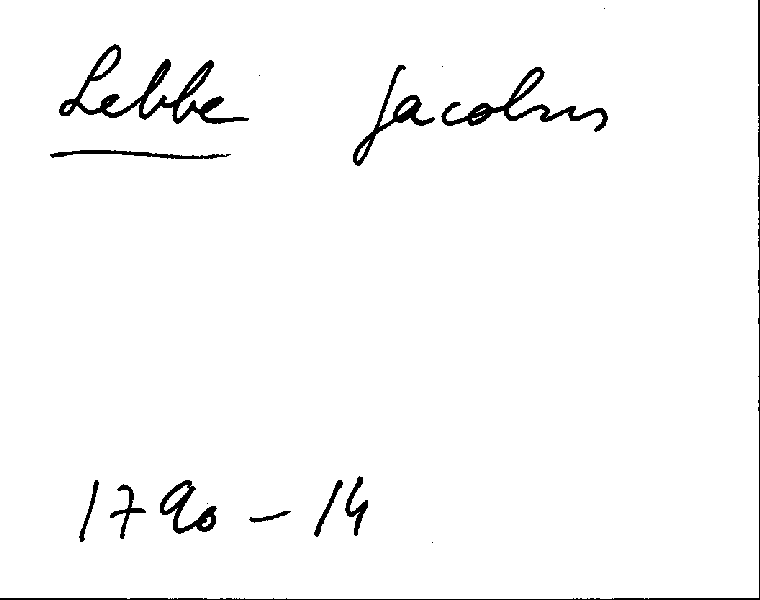 Lebbe Jacobus
1790 - 14